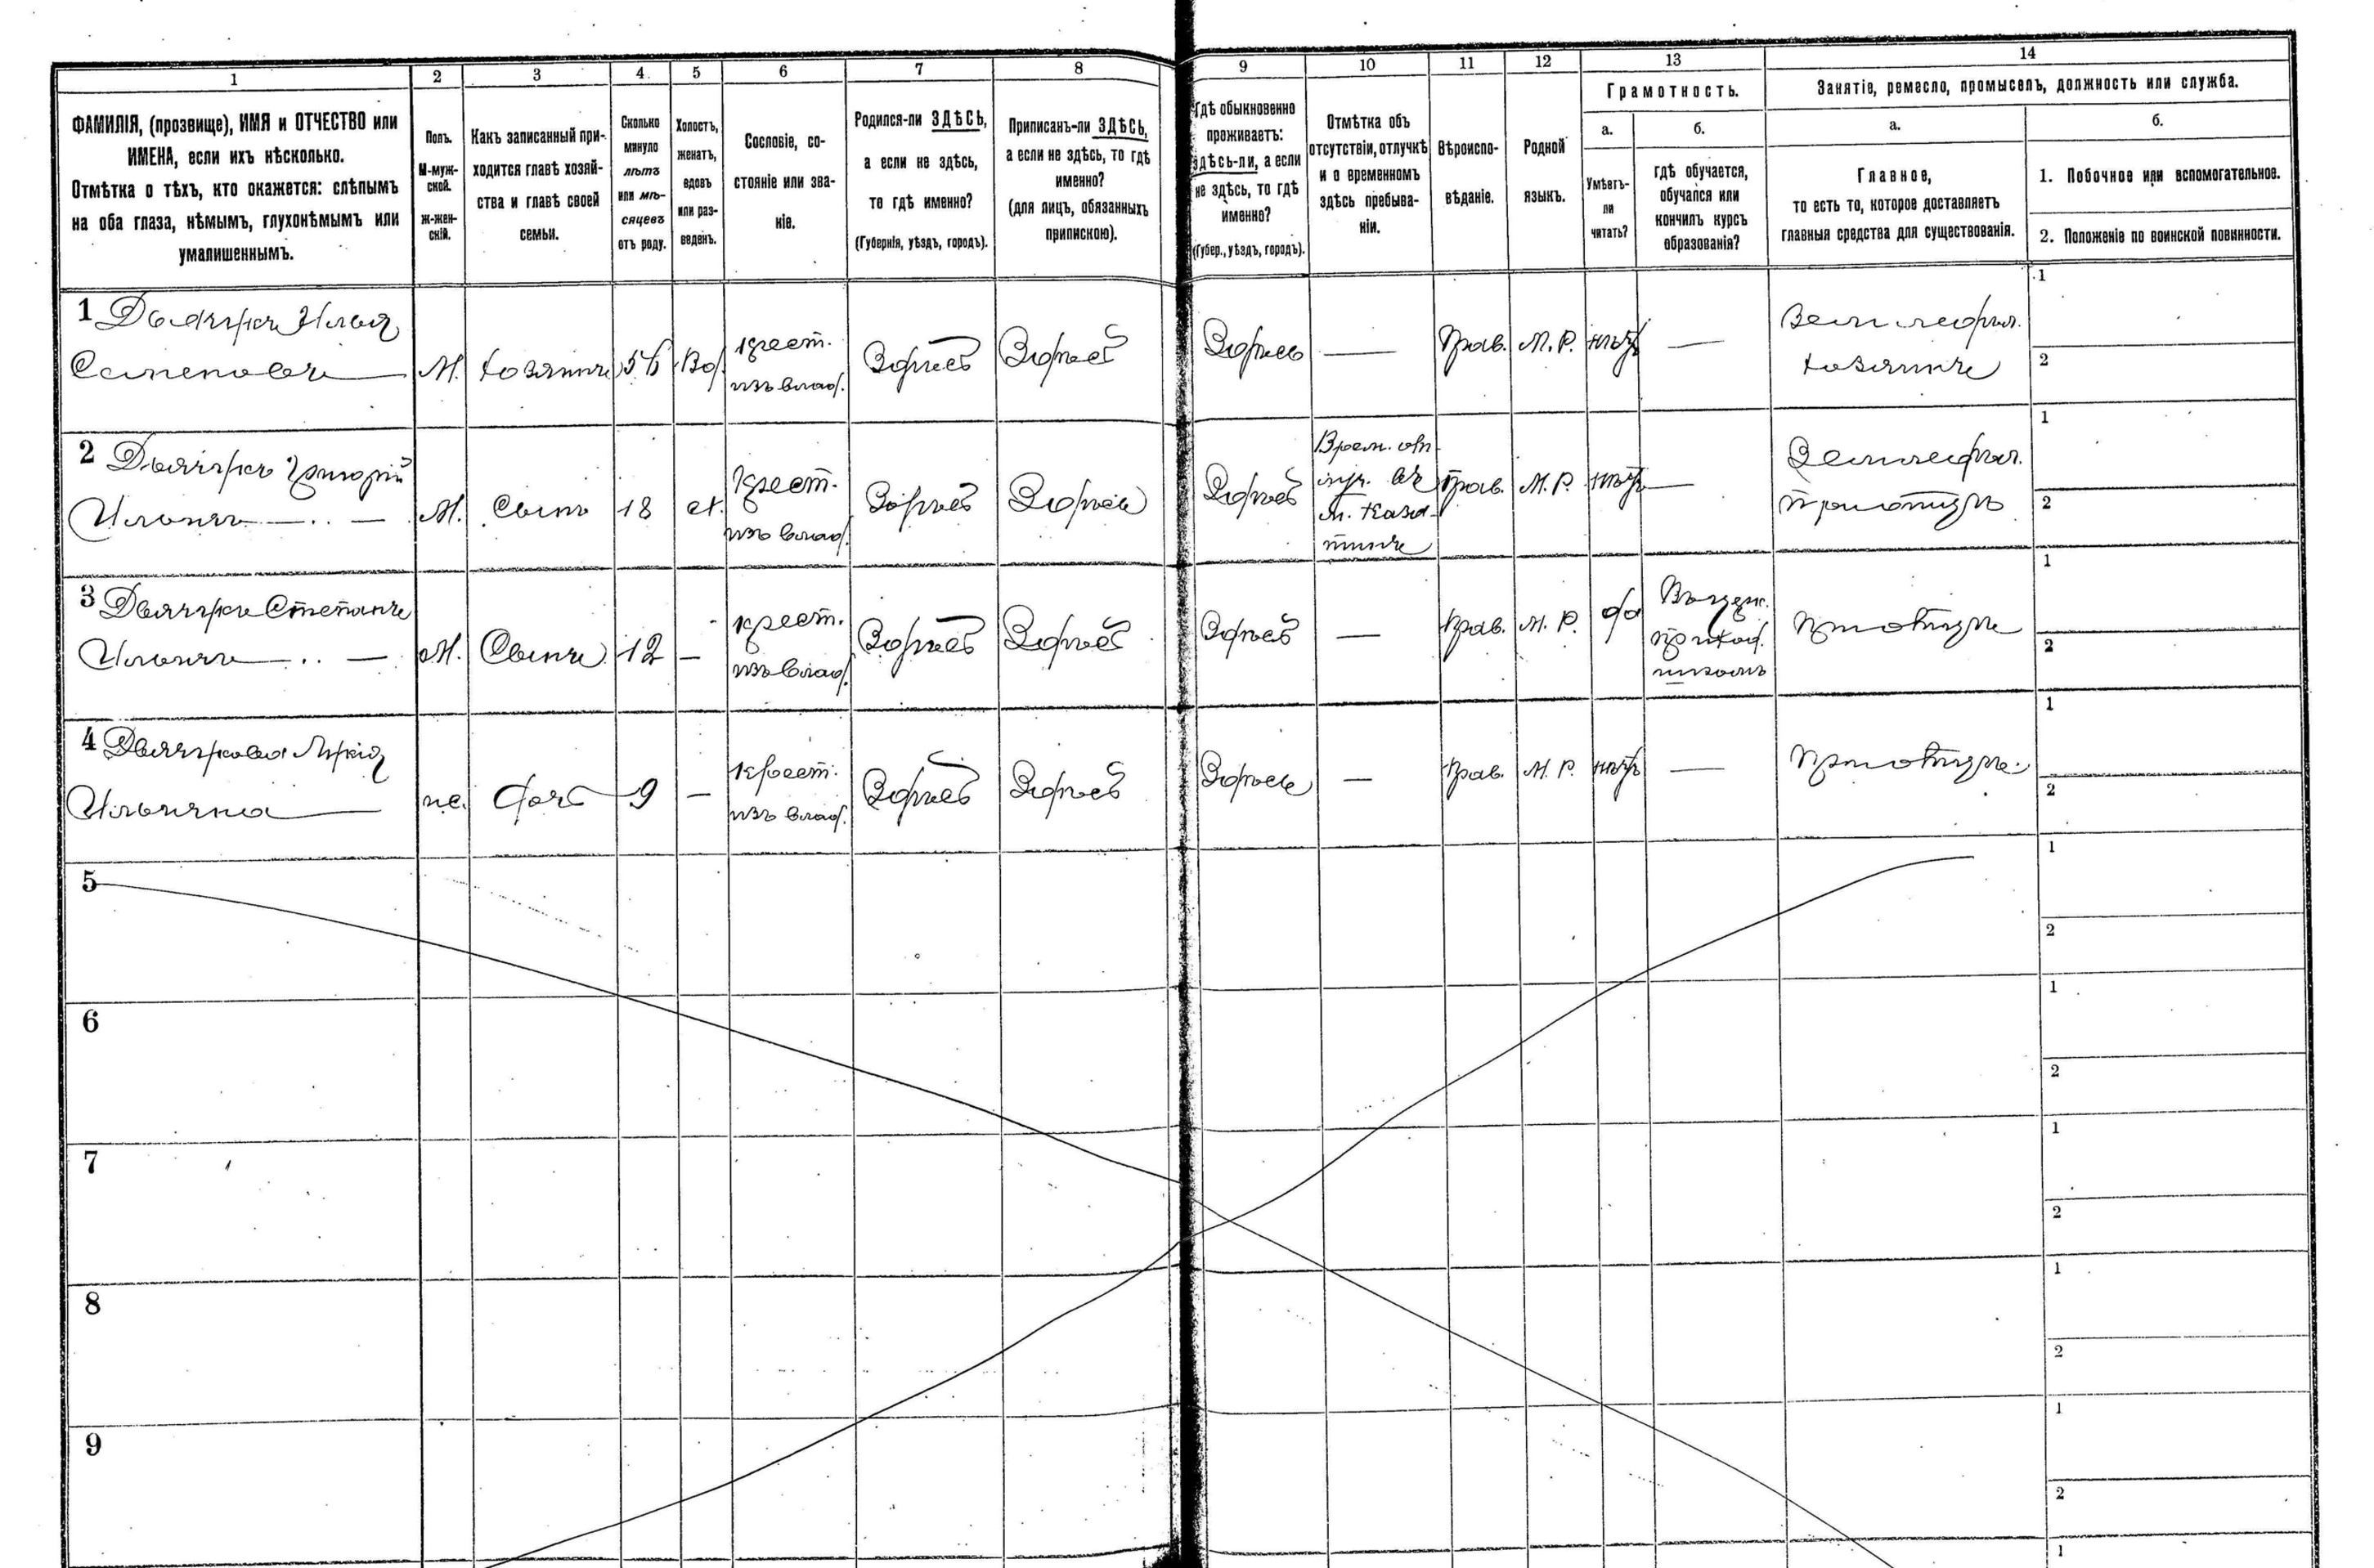 1
2
3
4
5
6
7
8
9
10
11
12
13
14
ФАМИЛІЯ, (прозвище), ИМЯ и ОТЧЕСТВО или
ИМЕНА, если ихъ нѣсколько.
Отмѣтка о тѣхъ, кто окажется: слѣпымъ
на оба глаза, нѣмымъ, глухонѣмымъ или
умалишеннымъ.
Полъ.
М-муж-
ской.
ж-жен-
скій.
Какъ записанный при-
ходится главѣ хозяй-
ства и главѣ своей
семьи.
Сколько
минуло
лѣтъ
или мѣ-
сяцевъ
отъ роду.
Холостъ,
женатъ,
вдовъ
или раз-
веденъ.
Сословіе, со-
стояніе или зва-
ніе.
Родился-ли ЗДѢСЬ,
а если не здѣсь,
то гдѣ именно?
(Губернія, уѣздъ, городъ).
Приписанъ-ли ЗДѢСЬ,
а если не здѣсь, то гдѣ
именно?
(для лицъ, обязанныхъ
припискою).
Гдѣ обыкновенно
проживаетъ:
здѣсь-ли, а если
не здѣсь, то гдѣ
именно?
(Губер., уѣздъ, городъ).
Отмѣтка объ
отсутствіи, отлучкѣ
и о временномъ
здѣсь пребыва-
ніи.
Вѣроиспо-
вѣданіе.
Родной
языкъ.
Грамотность.
а.
Умѣетъ-
ли
читать?
б.
гдѣ обучается,
обучался или
кончилъ курсъ
образованія?
Занятіе, ремесло, промыселъ, должность или служба.
а.
Главное,
то есть то, которое доставляетъ
главныя средства для существованія.
б.
1. Побочное или вспомогательное.
2. Положеніе по воинской повинности.
1
Илья
Семеновъ
М.
Хозяинъ
Вд.
крест.
изъ влад.
Здѣсь
Здѣсь
Здѣсь
—
Прав.
М. Р.
нѣтъ
—
Земледѣл.
хозяинъ
1
2
2
Григорій
Ильинъ
М.
Сынъ
18
х.
крест.
изъ влад.
Здѣсь
Здѣсь
Здѣсь
Врем. от
луч. въ
Прав.
М. Р.
нѣтъ
—
Земледѣл.
1
2
3
Степанъ
Ильинъ
М.
Сынъ
12
—
крест.
изъ влад.
Здѣсь
Здѣсь
Здѣсь
—
Прав.
М. Р.
да
приход.
школѣ
при отцѣ
1
2
4
Ильина
ж.
Дочь
9
—
крест.
изъ влад.
Здѣсь
Здѣсь
Здѣсь
—
Прав.
М. Р.
нѣтъ
—
при отцѣ
1
2
5
1
2
6
1
2
7
1
2
8
1
2
9
1
2
1